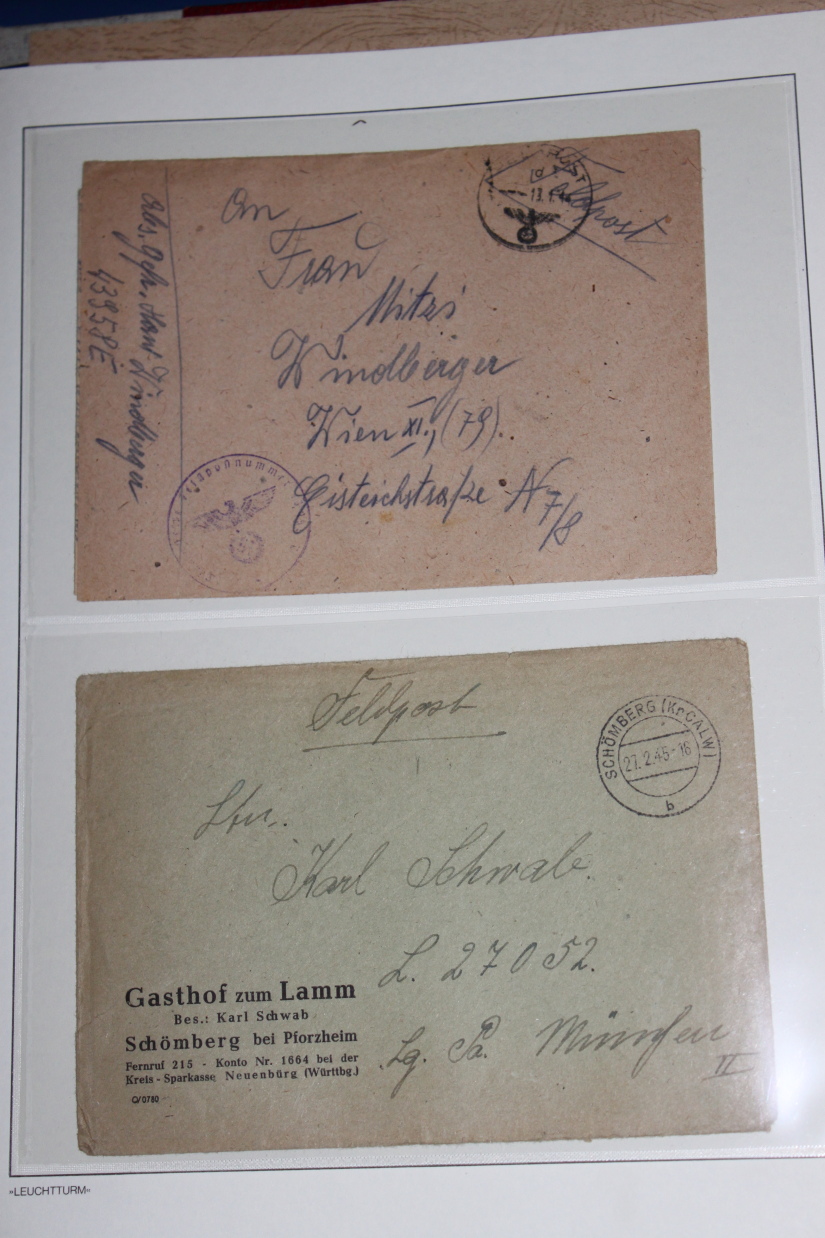 Feldpost
13.1.4
An
Frau
Mitzi
Windberger
Wien XI., (79).
Geisteichstraße N 7/8
Abs. Gefr. Hans Windberger
43958E
Feldpostnummer
Feldpost
SCHÖMBERG (Kr. CALW)
27.2.45-16
b
Karl Schwab.
L. 27052.
Lg. Pa. München
II
Gasthof zum Lamm
Bes.: Karl Schwab
Schömberg bei Pforzheim
Fernruf 215 - Konto Nr. 1664 bei der
Kreis-Sparkasse Neuenbürg (Württbg.)
Q/0780
»LEUCHTTURM»